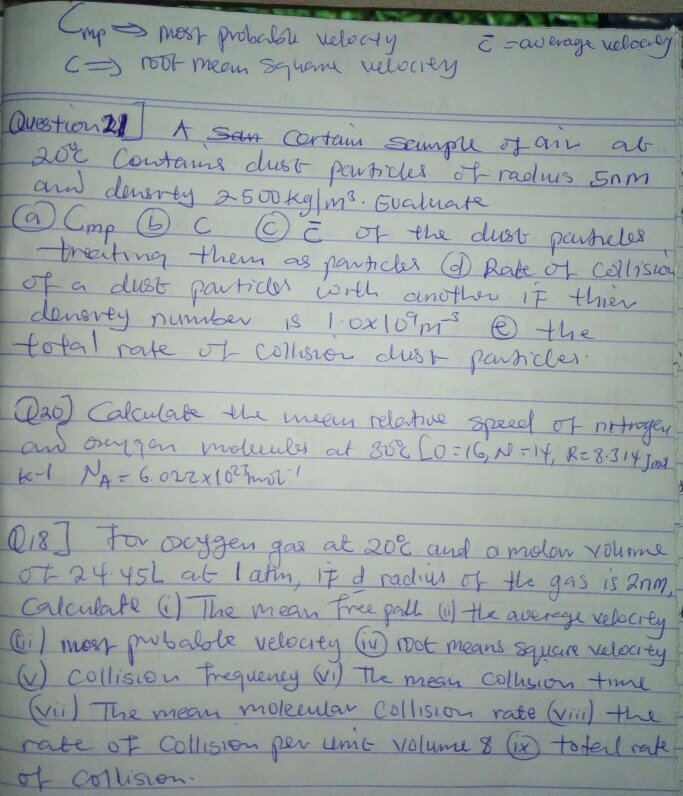 Cmp ⇒ most probable velocity c̄ = average velocity
C ⇒ root mean square velocity
Question 21] A San Certain sample of air at
20°C Contains dust particles of radius 5nm
and density 2500kg/m³. Evaluate
(a) Cmp (b) C (c) c̄ of the dust particles
treating them as particles (d) Rate of collision
of a dust particles with another if thier
density number is 1.0x10⁹m⁻³ (e) the
total rate of collision dust particles.
Q20] Calculate the mean relative speed of nitrogen
and oxygen molecules at 30°C [O=16, N=14, R=8.314J
K-1 N_A = 6.022x10²³mol⁻¹
Q18] For oxygen gas at 20°C and a molar volume
of 24.45L at 1 atm, if d radius of the gas is 2nm,
Calculate (i) The mean free path (ii) the average velocity
(iii) most probable velocity (iv) root means square velocity
(v) collision frequency (vi) The mean collision time
(vii) The mean molecular collision rate (viii) the
rate of collision per unit volume & (ix) total rate
of collision.